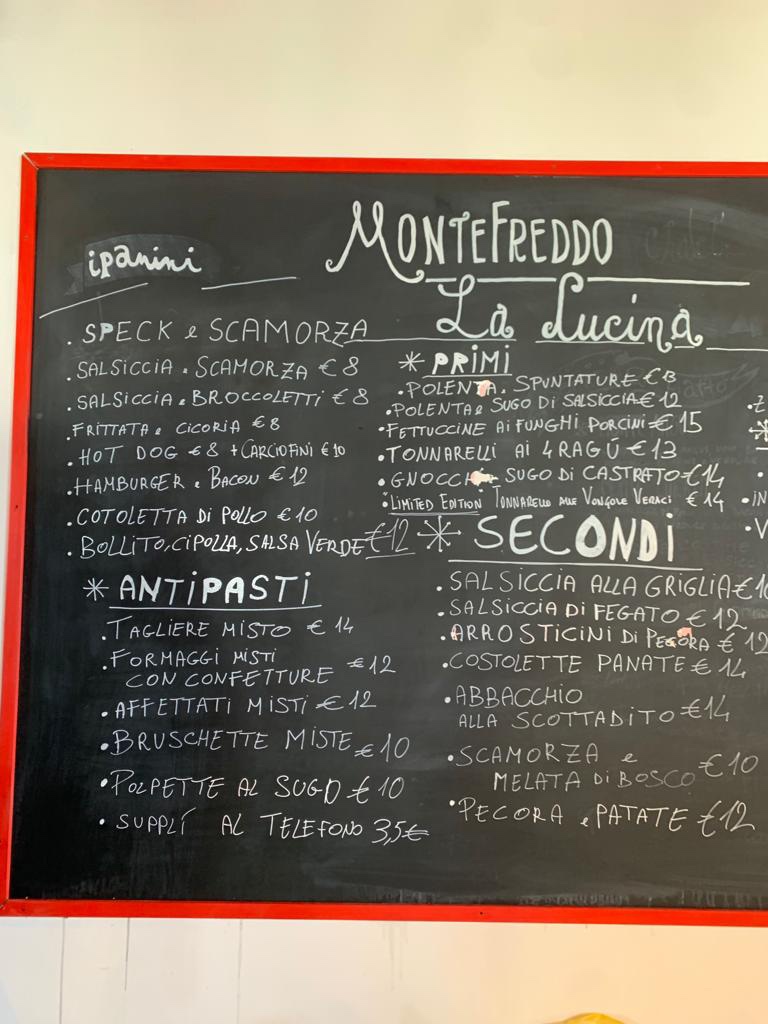 MONTEFREDDO
La Lucina
i panini
. SPECK e SCAMORZA
. SALSICCIA e SCAMORZA € 8
. SALSICCIA e BROCCOLETTI € 8
. FRITTATA e CICORIA € 8
. HOT DOG € 8 + CARCIOFINI € 10
. HAMBURGER e BACON € 12
. COTOLETTA Di POLLO € 10
. BOLLITO, CIPOLLA, SALSA VERDE € 12
* ANTiPASTi
. TAGLIERE MISTO € 14
. FORMAGGI MISTI
CON CONFETTURE € 12
. AFFETTATI MISTI € 12
. BRUSCHETTE MISTE € 10
. POLPETTE AL SUGO € 10
. SUPPLÍ AL TELEFONO 3,5 €
* PRiMi
. POLENTA e SPUNTATURE € 13
. POLENTA e SUGO DI SALSICCIA € 12
. FETTUCCINE Ai FUNGHI PORCINI € 15
. TONNARELLI Ai 4 RAGÚ € 13
. GNOCCHI SUGO DI CASTRATO € 14
. "LIMITED EDITION" TONNARELLO ALLE VONGOLE VERACI € 14
* SECONDi
. SALSICCIA ALLA GRIGLIA € 10
. SALSICCIA DI FEGATO € 12
. ARROSTICINI Di PECORA € 12
. COSTOLETTE PANATE € 14
. ABBACCHIO
ALLA SCOTTADITO € 14
. SCAMORZA e
MELATA Di BOSCO € 10
. PECORA e PATATE € 12